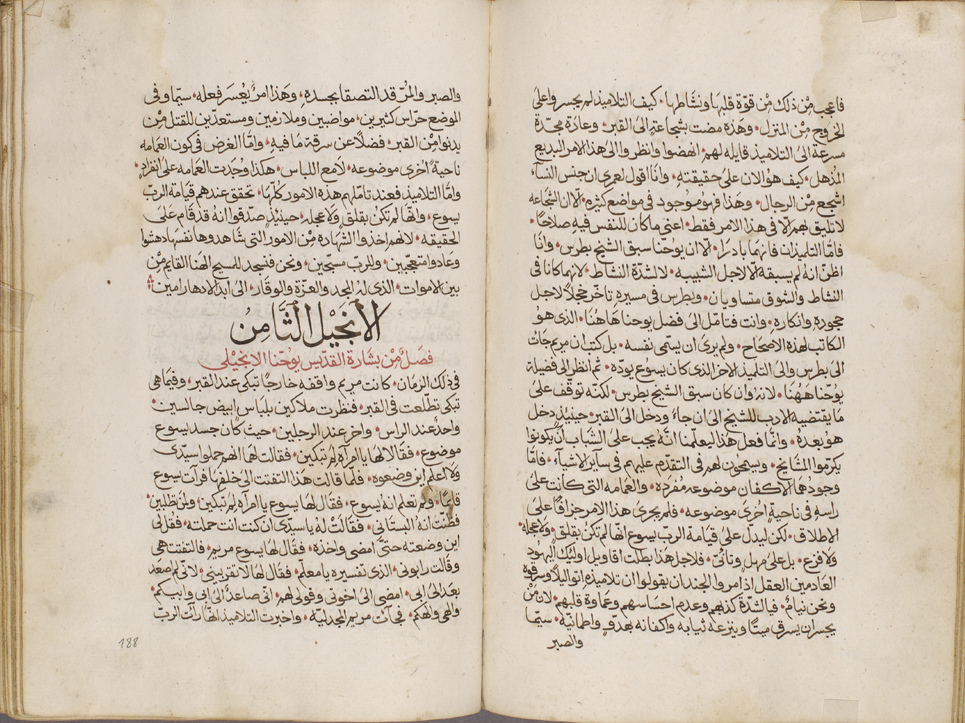 فاعجب من ذلك من قوة قلبها ونشاطها • كيف التلاميذ لم يجسروا على
الخروج من المنزل • وهذه مضت بشجاعة الى القبر • وعادة مجرة
مسرعة الى التلاميذ قايله لهم • انهضوا وانظروا الى هذا الامر البديع
المذهل • كيف هو الان على حقيقته • وانا اقول لعمري ان جنس النساء
اشجع من الرجال • وهذا فهو موجود في مواضع كثيره • الا ان الشجاعه
لا تليق بهم الا في هذا الامر فقط • اعني ما كان للنفس فيه صلاحا •
فاما التلميذان فانهما بادرا • الا ان يوحنا سبق الشيخ بطرس • وانا
اظن انه لم يسبقه الا لاجل الشيبيه • لا لشدة النشاط • لانهما كانا في
النشاط والشوق متساويان • وبطرس في مسيره تاخر مخجلا لاجل
جحوده وانكاره • وانت فتامل الى فضل يوحنا هاهنا • الذي هو
الكاتب لهذه الاصحاح • ولم يرى ان يسمي نفسه • بل كتب ان مريم جات
الى بطرس والى التلميذ الاخر الذي كان يسوع يوده • ثم انظر الى فضيلة
يوحنا ههنا • لانه وان كان سبق الشيخ بطرس • لكنه توقف على
ما يقتضيه الادب للشيخ الى ان جاء • ودخل الى القبر • حينيذ دخل
هو بعده • وانما فعل هذا ليعلمنا انه يجب على الشباب ان يكونوا
يكرموا المشايخ • ويبيحون لهم في التقدم عليهم في ساير الاشياء • فاما
وجودهما الاكفان موضوعه مفرده • والعمامه التي كانت على
راسه في ناحية اخرى موضوعه • فلم يجري هذا الامر جزافا على
الاطلاق • لكن ليدل على قيامة الرب يسوع انها لم تكن بقلق • ولا عجله •
ولا فزع • بل على مهل وتاني • فلاجل هذا بطلت اقاويل اوليك اليهود
العادمين العقل اذ امروا الجند ان يقولوا ان تلاميذه اتوا ليلا وسرقوه
ونحن نيام • فيا لشدة كذبهم وعدم احساسهم وعماوة قلبهم • لان من
يجسر ان يسرق ميتا وينزعه ثيابه واكفانه بهدو واطمانيه • سيما
والصبر
والصبر والمر قد التصقا بجسده • وهذا امر يعسر فعله • سيما وفي
الموضع حراس كثيرين • مواضبين وملازمين ومستعدين للقتل من
يدنوا من القبر • فضلا عن سرقة ما فيه • واما الغرض في كون العمامه
ناحية اخرى موضوعه • لامع اللباس • هكذا وجدت العمامه على انفراد •
واما التلاميذ فعند تاملهم هذه الامور كلها • تحقق عندهم قيامة الرب
يسوع • وانها لم تكن بقلق ولا عجله • حينيذ صدقوا انه قد قام على
الحقيقه • لانهم اخذوا الشهاده من الامور التي شاهدوها نفسها • دهشوا
وعادوا متعجبين • وللرب مسبحين • ونحن فنسجد للمسيح الهنا القايم من
بين الاموات • الذي له المجد والعزة والوقار • الى ابد الادهار امين
الانجيل الثامن
فصل من بشارة القديس يوحنا الانجيلي
في ذلك الزمان • كانت مريم واقفه خارجا تبكي عند القبر • وفيما هي
تبكي تطلعت في القبر • فنظرت ملاكين بلباس ابيض جالسين •
واحد عند الراس • واخر عند الرجلين • حيث كان جسد يسوع
موضوع • فقالا لها يا امراه لم تبكين • فقالت لهما انهم حملوا سيدي
ولا اعلم اين وضعوه • فلما قالت هذا التفتت الى خلفها فرات يسوع
قايما • ولم تعلم انه يسوع • فقال لها يسوع يا امراه لم تبكين • ولمن تطلبين •
فظنت انه البستاني • فقالت له يا سيدي ان كنت انت حملته • فقل لي
اين وضعته حتى امضي واخذه • فقال لها يسوع مريم • فالتفتت هي
وقالت رابوني • الذي تفسيره يا معلم • فقال لها لا تقربيني • لاني لم اصعد
بعد الى ابي • امضي الى اخوتي وقولي لهم • اني صاعد الى ابي وابيكم •
والهي والهكم • فجات مريم المجدليه • واخبرت التلاميذ انها رات الرب
188